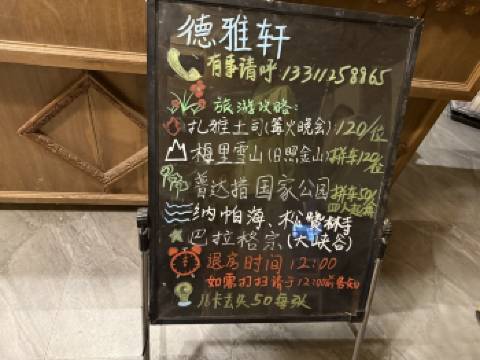 德雅轩
有事请呼:13311258865
旅游攻略:
扎雅土司(篝火晚会)120/位
梅里雪山(日照金山)拼车120/位
普达措国家公园 拼车50/
四人起
纳帕海、松赞林寺
巴拉格宗(大峡谷)
退房时间12:00
如需打扫请于12:00前告知
房卡丢失50每张